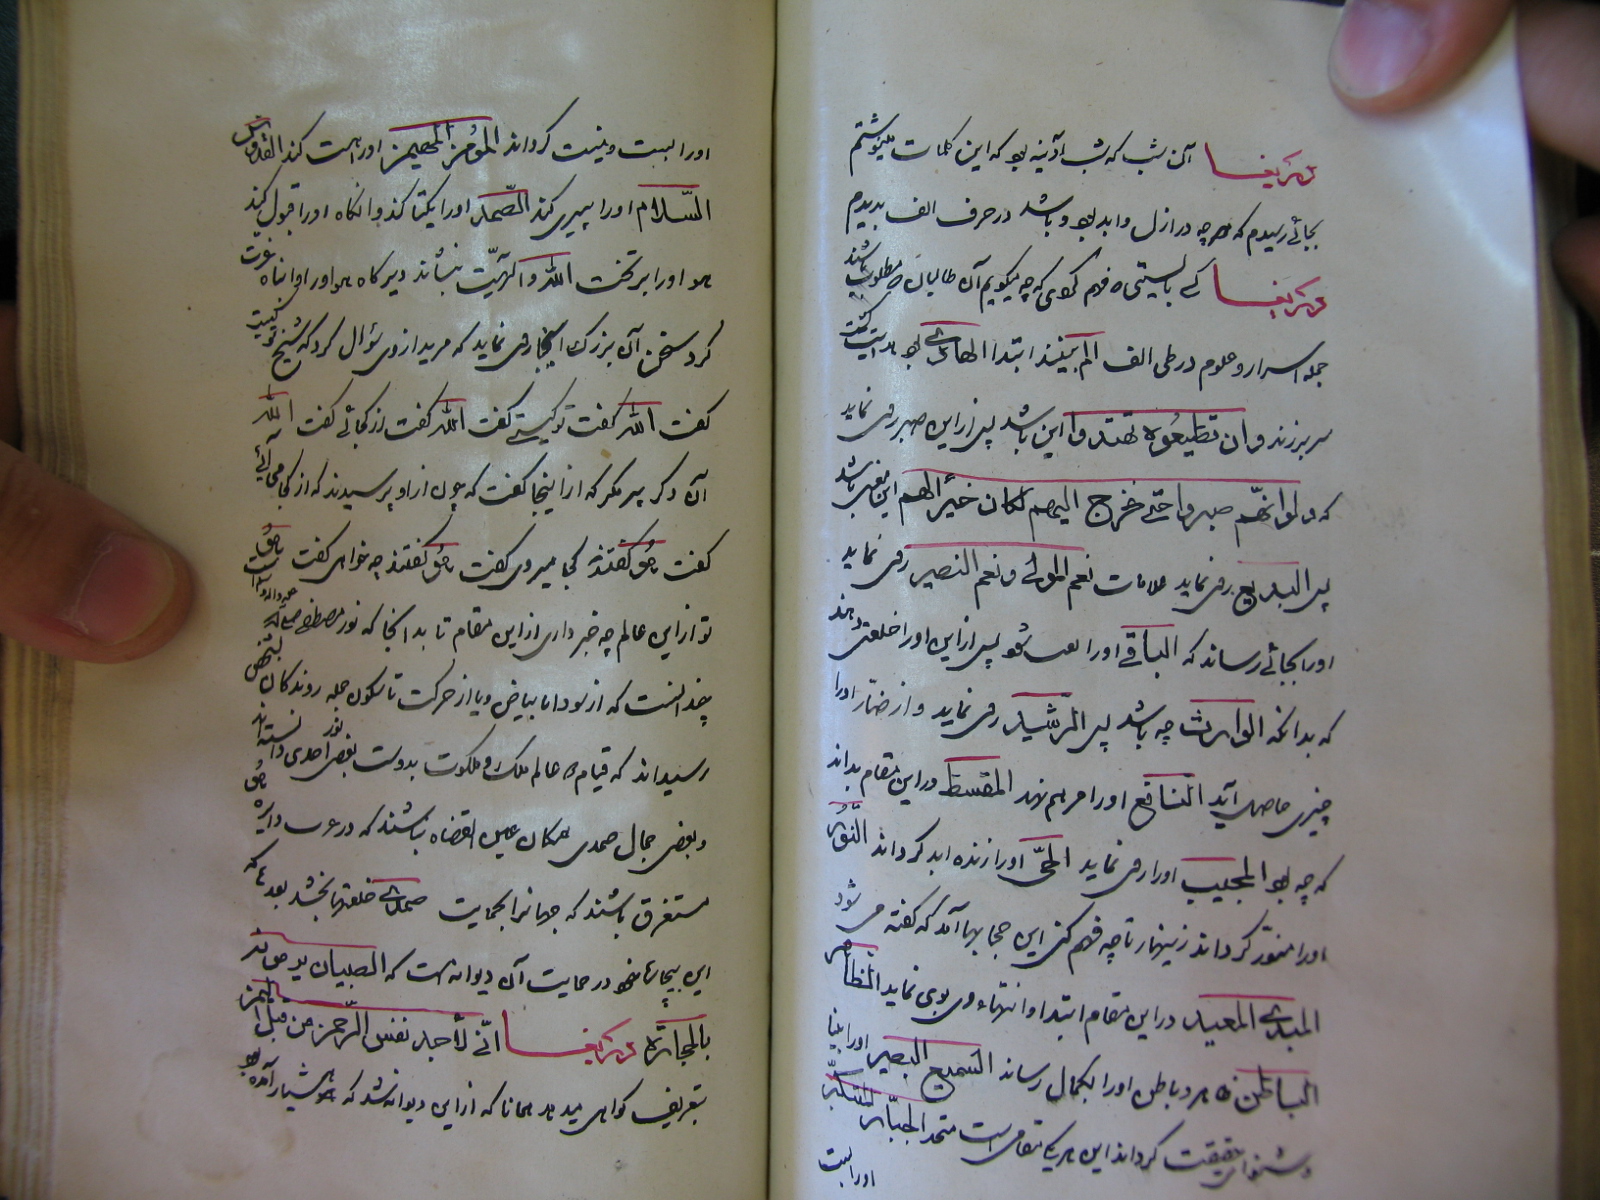 ای عزیز آن شب که شب آدینه بود که این کلمات مینوشتم
بجائی رسیدم که هرچه در ازل و ابد بود و باشد در حرف الف بدیدم
کسی بایستی که فهم کردی که چه میگویم آن طالبان که مطلوب باشند
جمله اسرار و علوم در طی الف الم بینند ابتدا الهادی بود هدایت
سر برزند وان تطیعوه تهتدوا این باشد پس از این صبر روی نماید
که ولو انهم صبروا حتی تخرج الیهم لکان خیرا لهم این معنی باشد
پس البدیع روی نماید علامات نعم المولی و نعم النصیر روی نماید
اورا بجائی رساند که الباقی اورا شود پس از این اورا خلعتی دهند
که بداند که الوارث چه باشد پس الرشید روی نماید و از ضار اورا
چیزی حاصل آید النافع اورا مرهم نهد المقسط در این مقام بداند
که چه بود المجیب اورا روی نماید الحی اورا زنده ابد گرداند النور
اورا منور گرداند زینهار تا چه فهم کنی این حجابها آمد که گفته می شود
المبدئ المعید در این مقام ابتدا و انتها بوی نماید الظاهر
الباطن ظاهر و باطن اورا بکمال رساند السمیع البصیر اورا بینا
و شنوای حقیقت گرداند این هر یکی مقامی است متحد الجبار المتکبر
اورا نیست
اورا نیست و نیست گرداند المؤمن المهیمن اورا هست کند القدوس
السلام اورا سپری کند الصمد اورا یکتا کند و آنگاه اورا قبول کند
و اورا بر تخت الله و الهیت بنشاند دیرگاه
کرد سخن آن بزرگ اینجا روی نماید که مرید از وی سؤال کرد که شیخ تو کیست
گفت الله گفت تو کیستی گفت الله گفت از کجائی گفت الله
آن دگر پیر مگر که از اینجا گفت که چون از او پرسیدند که از کجا می آئی
گفت هو گفتند کجا میروی گفت هو گفتند چه خواهی گفت هو
تو از این عالم چه خبر داری از این مقام تا بدانجا که نور مصطفی صلی الله علیه و آله است
چندانست که از سواد تا بیاض و یا از حرکت تا سکون جمله روندگان بعضی
رسیدند که قیام عالم ملک و ملکوت بدوست بعضی نور احدی دانسته‌اند
و بعضی جمال صمدی همکان عین القضاه باشند که در دایره هو
مستغرق باشند که جهانرا بحمایت صمدی خلعتها بخشد بعد ما که
این بیچاره خود در حمایت آن دیوانه است که الصبیان یرمونه
بالحجارة ای عزیز انی لأجد نفس الرحمن من قبل الیمن
بتعریف گواهی میدهد همانا که از این دیوانه شد که هوشیار آمده بود